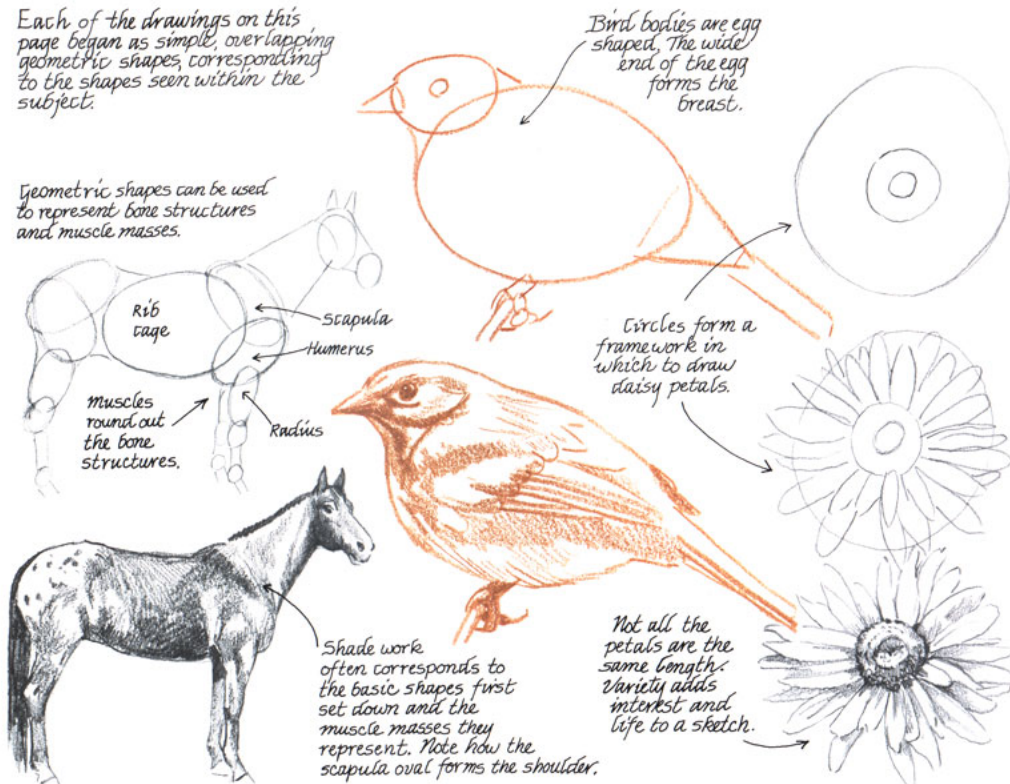 Each of the drawings on this
page began as simple, overlapping
geometric shapes, corresponding
to the shapes seen within the
subject.
Bird bodies are egg
shaped. The wide
end of the egg
forms the
breast.
Geometric shapes can be used
to represent bone structures
and muscle masses.
Rib
cage
Scapula
Humerus
Radius
Muscles
round out
the bone
structures.
Circles form a
framework in
which to draw
daisy petals.
Shade work
often corresponds to
the basic shapes first
set down and the
muscle masses they
represent. Note how the
scapula oval forms the shoulder.
Not all the
petals are the
same length.
Variety adds
interest and
life to a sketch.